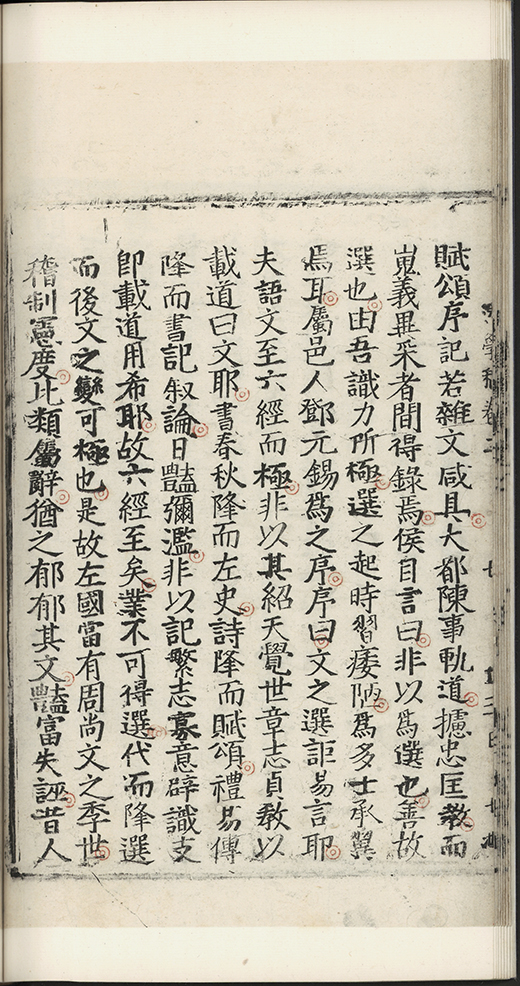 賦頌序記若雜文咸具大都陳事軌道攄忠匡敎而
嵬義畢采者間得錄焉侯自言曰非以爲選也善故
選也由吾識力所極選之起時習痿陋爲多士承翼
焉耳屬邑人鄧元錫爲之序序曰文之選詎易言耶
夫語文至六經而極非以其紹天覺世章志貞敎以
載道曰文耶書春秋降而左史詩降而賦頌禮易傳
降而書記叙論日豔彌濫非以記繁志寡意辟識支
卽載道用希耶故六經至矣業不可得選代而降選
而後文之變可極也是故左國當有周尚文之季世
稽制憲度比類屬辭猶之郁郁其文豔富失誣昔人